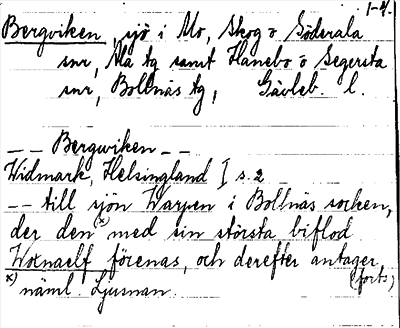 1-4.
Bergviken, sjö i Mo, Skog o Söderala
snr, Ala tg samt Hanebo o Segersta
snr, Bollnäs tg, Gävleb. l.
-- Bergwiken --
Widmark, Helsingland I s. 2
-- till sjön Warpen i Bollnäs socken,
der den x) med sin största biflod
Woxnaelf förenas, och derefter antager
x) näml. Ljusnan. (forts)